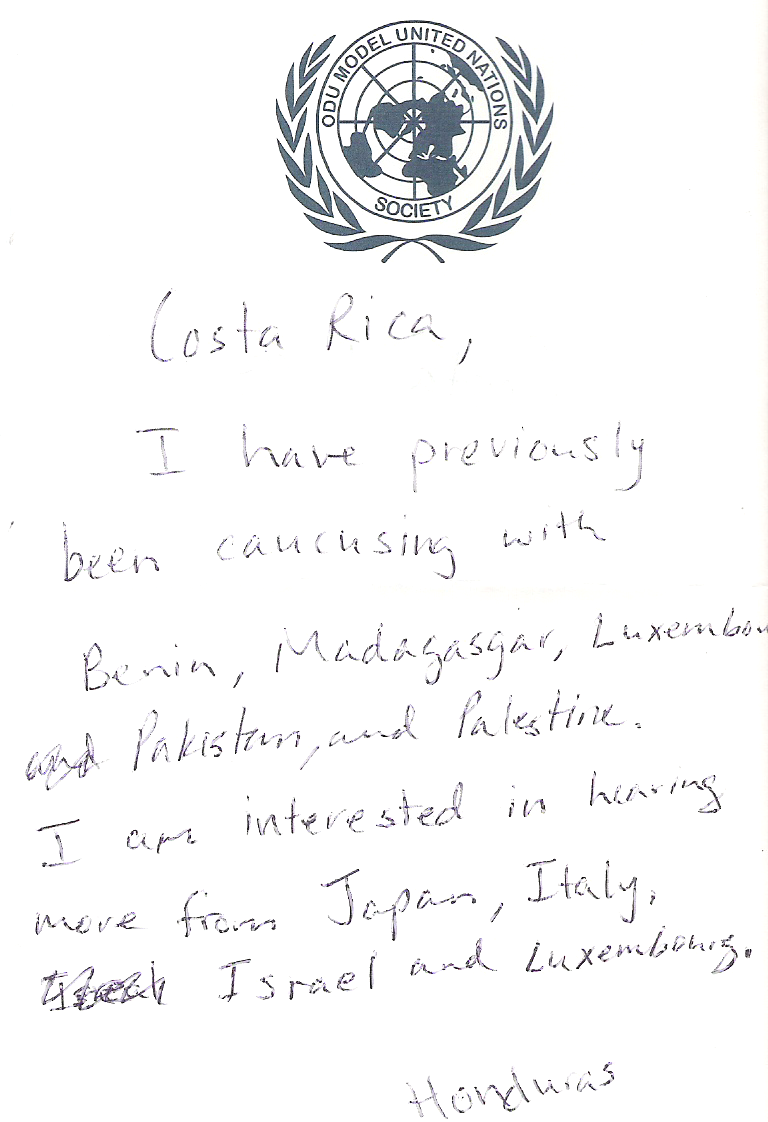 ODU MODEL UNITED NATIONS
SOCIETY
Costa Rica,
I have previously
been caucusing with
Benin, Madagasgar, Luxembou
Pakistan, and Palestine.
I am interested in hearing
more from Japan, Italy,
Israel and Luxembourg.
Honduras